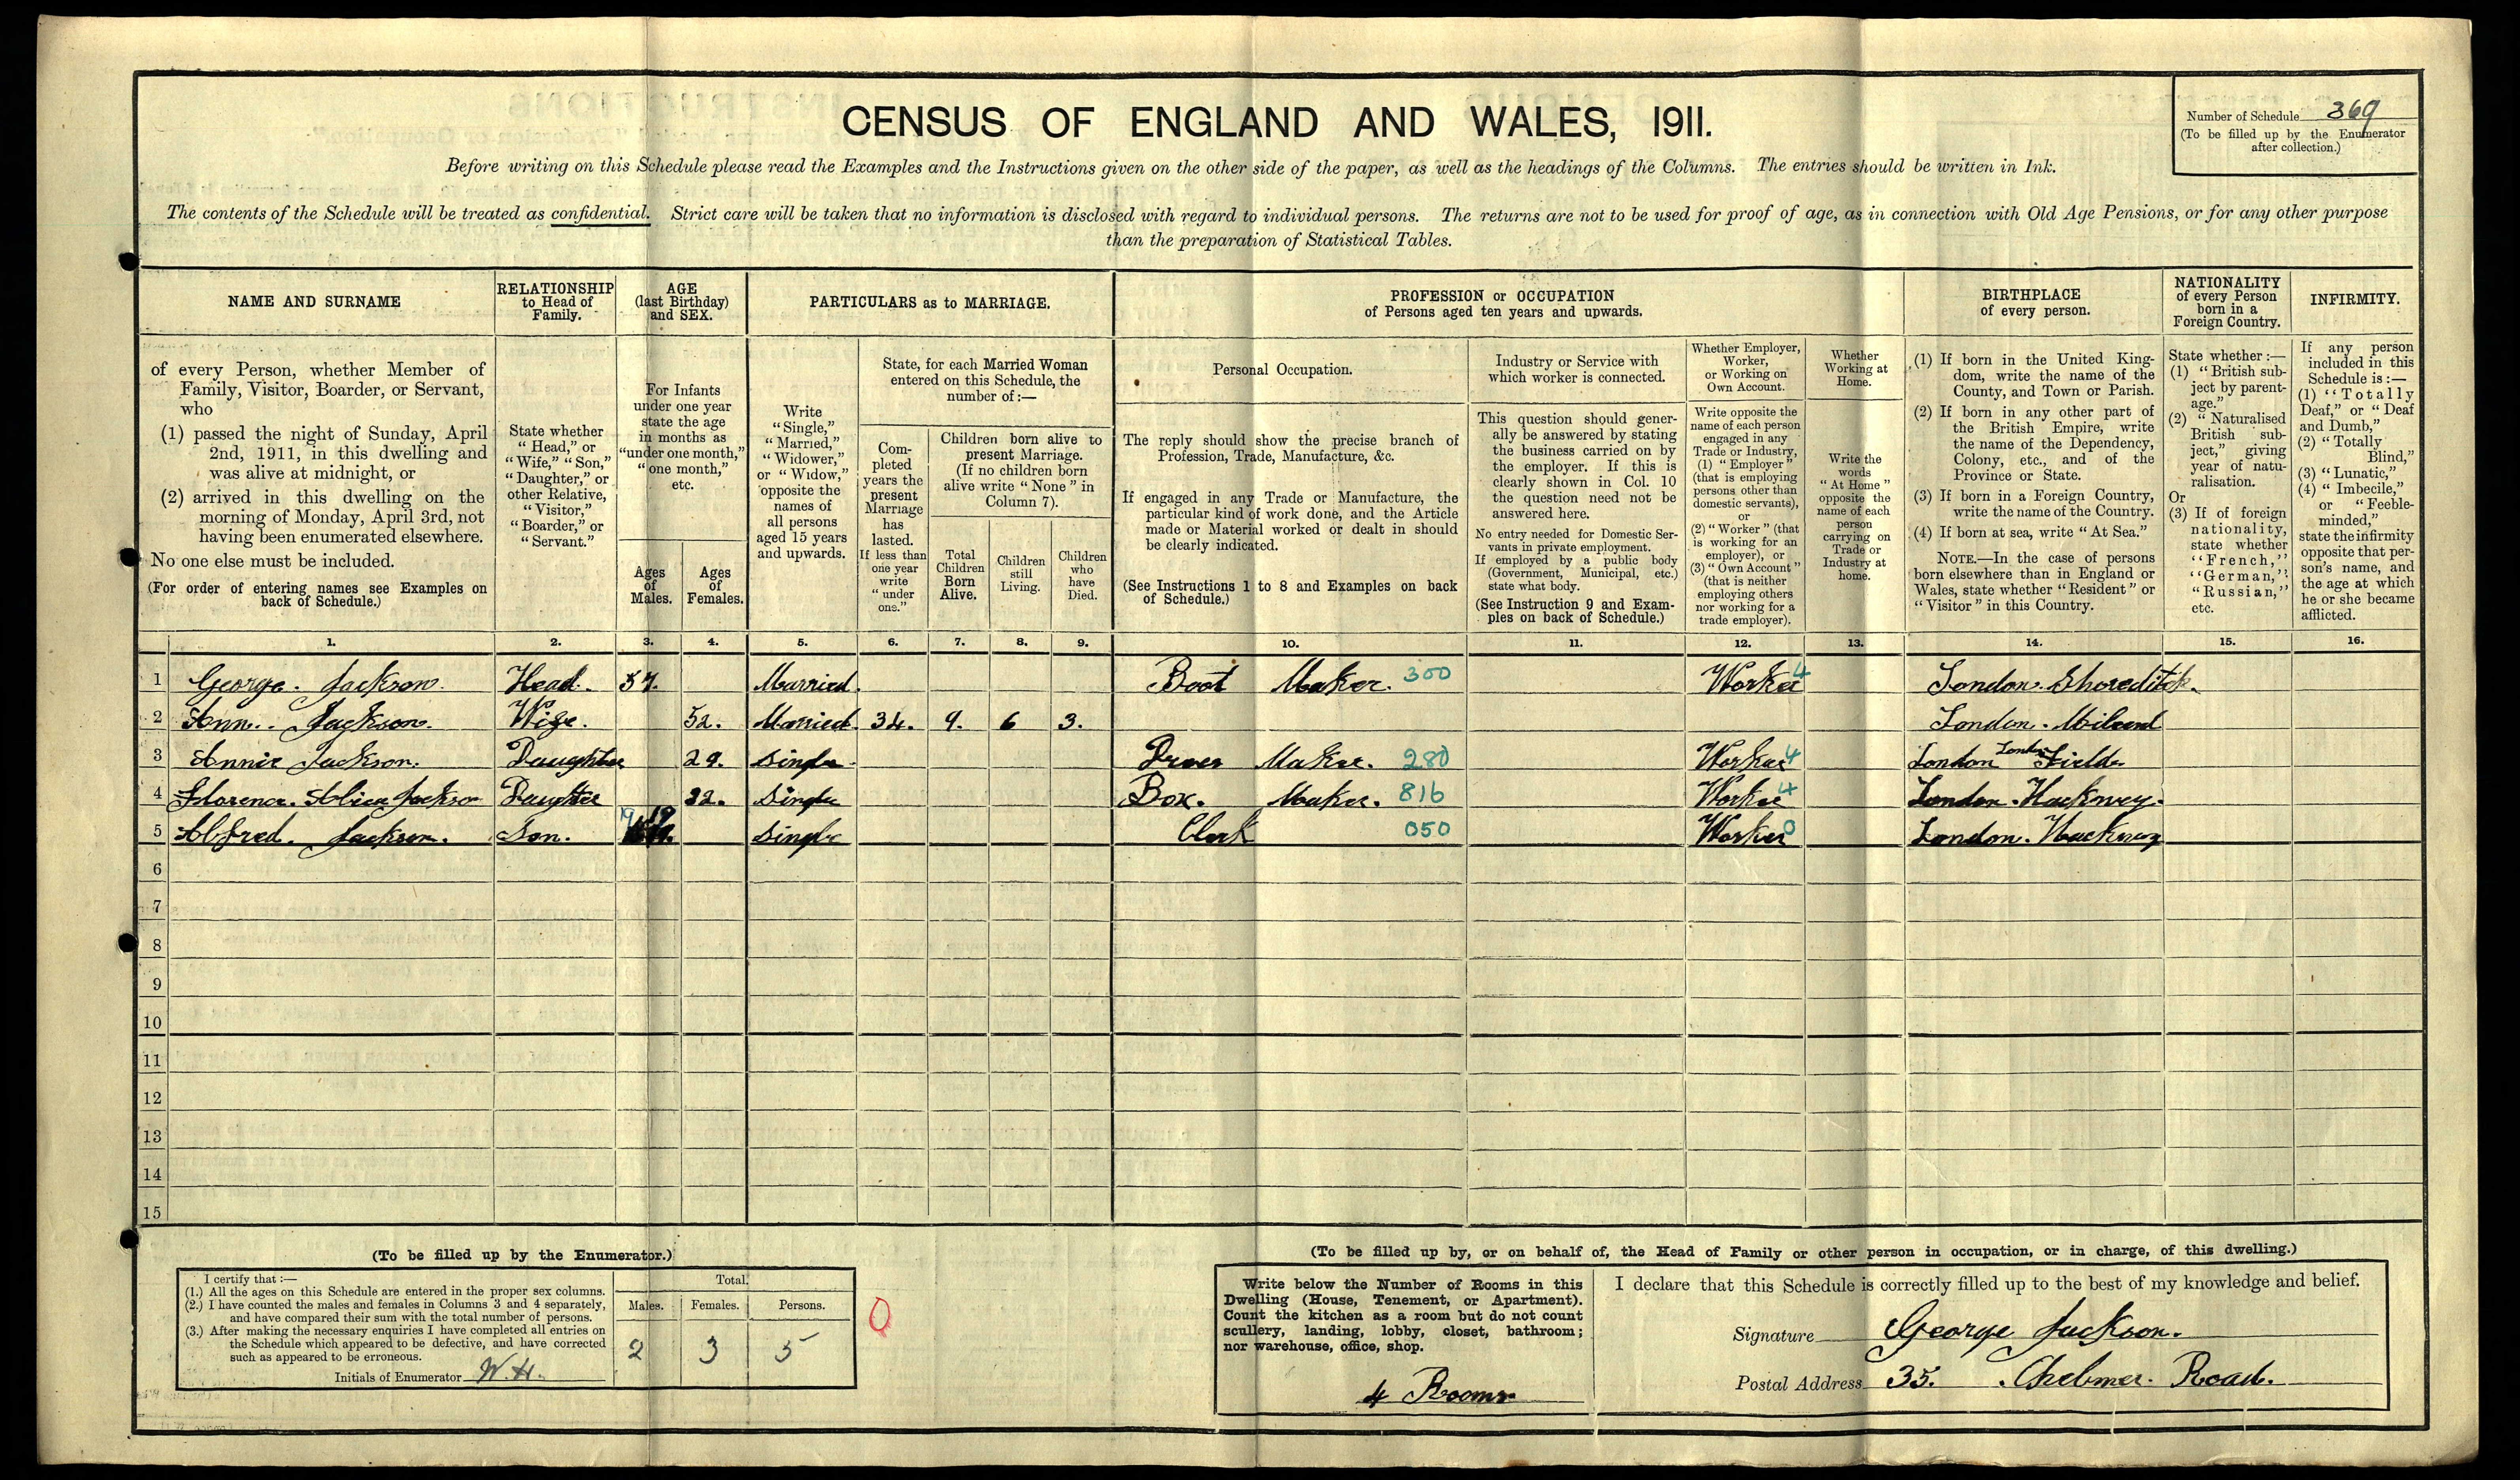 CENSUS OF ENGLAND AND WALES, 1911.
Number of Schedule 369
(To be filled up by the Enumerator
after collection.)
Before writing on this Schedule please read the Examples and the Instructions given on the other side of the paper, as well as the headings of the Columns. The entries should be written in Ink.
The contents of the Schedule will be treated as confidential. Strict care will be taken that no information is disclosed with regard to individual persons. The returns are not to be used for proof of age, as in connection with Old Age Pensions, or for any other purpose
than the preparation of Statistical Tables.
NAME AND SURNAME
RELATIONSHIP
to Head of
Family.
AGE
(last Birthday)
and SEX.
PARTICULARS as to MARRIAGE.
PROFESSION or OCCUPATION
of Persons aged ten years and upwards.
BIRTHPLACE
of every person.
NATIONALITY
of every Person
born in a
Foreign Country.
INFIRMITY.
of every Person, whether Member of
Family, Visitor, Boarder, or Servant,
who
(1) passed the night of Sunday, April
2nd, 1911, in this dwelling and
was alive at midnight, or
(2) arrived in this dwelling on the
morning of Monday, April 3rd, not
having been enumerated elsewhere.
No one else must be included.
(For order of entering names see Examples on
back of Schedule.)
State whether
"Head," or
"Wife," "Son,"
"Daughter," or
other Relative,
"Visitor,"
"Boarder," or
"Servant."
For Infants
under one year
state the age
in months as
"under one month,"
"one month,"
etc.
Ages
of
Males.
Ages
of
Females.
Write
"Single,"
"Married,"
"Widower,"
or "Widow,"
opposite the
names of
all persons
aged 15 years
and upwards.
State, for each Married Woman
entered on this Schedule, the
number of:—
Com-
pleted
years the
present
Marriage
has
lasted.
If less than
one year
write
"under
one."
Children born alive to
present Marriage.
(If no children born
alive write "None" in
Column 7).
Total
Children
Born
Alive.
Children
still
Living.
Children
who
have
Died.
Personal Occupation.
The reply should show the precise branch of
Profession, Trade, Manufacture, &c.
If engaged in any Trade or Manufacture, the
particular kind of work done, and the Article
made or Material worked or dealt in should
be clearly indicated.
(See Instructions 1 to 8 and Examples on back
of Schedule.)
Industry or Service with
which worker is connected.
This question should gener-
ally be answered by stating
the business carried on by
the employer. If this is
clearly shown in Col. 10
the question need not be
answered here.
No entry needed for Domestic Ser-
vants in private employment.
If employed by a public body
(Government, Municipal, etc.)
state what body.
(See Instruction 9 and Exam-
ples on back of Schedule.)
Whether Employer,
Worker,
or Working on
Own Account.
Write opposite the
name of each person
engaged in any
Trade or Industry,
(1) "Employer"
(that is employing
persons other than
domestic servants),
or
(2) "Worker" (that
is working for an
employer), or
(3) "Own Account"
(that is neither
employing others
nor working for a
trade employer).
Whether
Working at
Home.
Write the
words
"At Home"
opposite the
name of each
person
carrying on
Trade or
Industry at
home.
(1) If born in the United King-
dom, write the name of the
County, and Town or Parish.
(2) If born in any other part of
the British Empire, write
the name of the Dependency,
Colony, etc., and of the
Province or State.
(3) If born in a Foreign Country,
write the name of the Country.
(4) If born at sea, write "At Sea."
NOTE.—In the case of persons
born elsewhere than in England or
Wales, state whether "Resident" or
"Visitor" in this Country.
State whether:—
(1) "British sub-
ject by parent-
age."
(2) "Naturalised
British sub-
ject," giving
year of natu-
ralisation.
Or
(3) If of foreign
nationality,
state whether
"French,"
"German,"
"Russian,"
etc.
If any person
included in this
Schedule is:—
(1) "Totally
Deaf," or "Deaf
and Dumb,"
(2) "Totally
Blind,"
(3) "Lunatic,"
(4) "Imbecile,"
or "Feeble-
minded,"
state the infirmity
opposite that per-
son's name, and
the age at which
he or she became
afflicted.
1. 2. 3. 4. 5. 6. 7. 8. 9. 10. 11. 12. 13. 14. 15. 16.
1 George. Jackson. Head. 57. Married. Boot Maker. 300 Worker 4 London. Shoreditch.
2 Ann. Jackson. Wife. 52. Married. 34. 9. 6 3. London. Mile end
3 Annie Jackson. Daughter 29. Single. Maker. 280 Worker 4 London London Fields
4 Florence. Alice Jackson Daughter 22. Single Box. Maker. 816 Worker 4 London. Hackney.
5 Alfred. Jackson. Son. 19 19 Single Clerk 050 Worker 0 London. Hackney
6
7
8
9
10
11
12
13
14
15
(To be filled up by the Enumerator.)
I certify that:—
(1.) All the ages on this Schedule are entered in the proper sex columns.
(2.) I have counted the males and females in Columns 3 and 4 separately,
and have compared their sum with the total number of persons.
(3.) After making the necessary enquiries I have completed all entries on
the Schedule which appeared to be defective, and have corrected
such as appeared to be erroneous.
Initials of Enumerator W.H.
Total.
Males. Females. Persons.
2 3 5
0
(To be filled up by, or on behalf of, the Head of Family or other person in occupation, or in charge, of this dwelling.)
Write below the Number of Rooms in this
Dwelling (House, Tenement, or Apartment).
Count the kitchen as a room but do not count
scullery, landing, lobby, closet, bathroom;
nor warehouse, office, shop.
4 Rooms
I declare that this Schedule is correctly filled up to the best of my knowledge and belief.
Signature George Jackson.
Postal Address 35. Chelmer. Road.